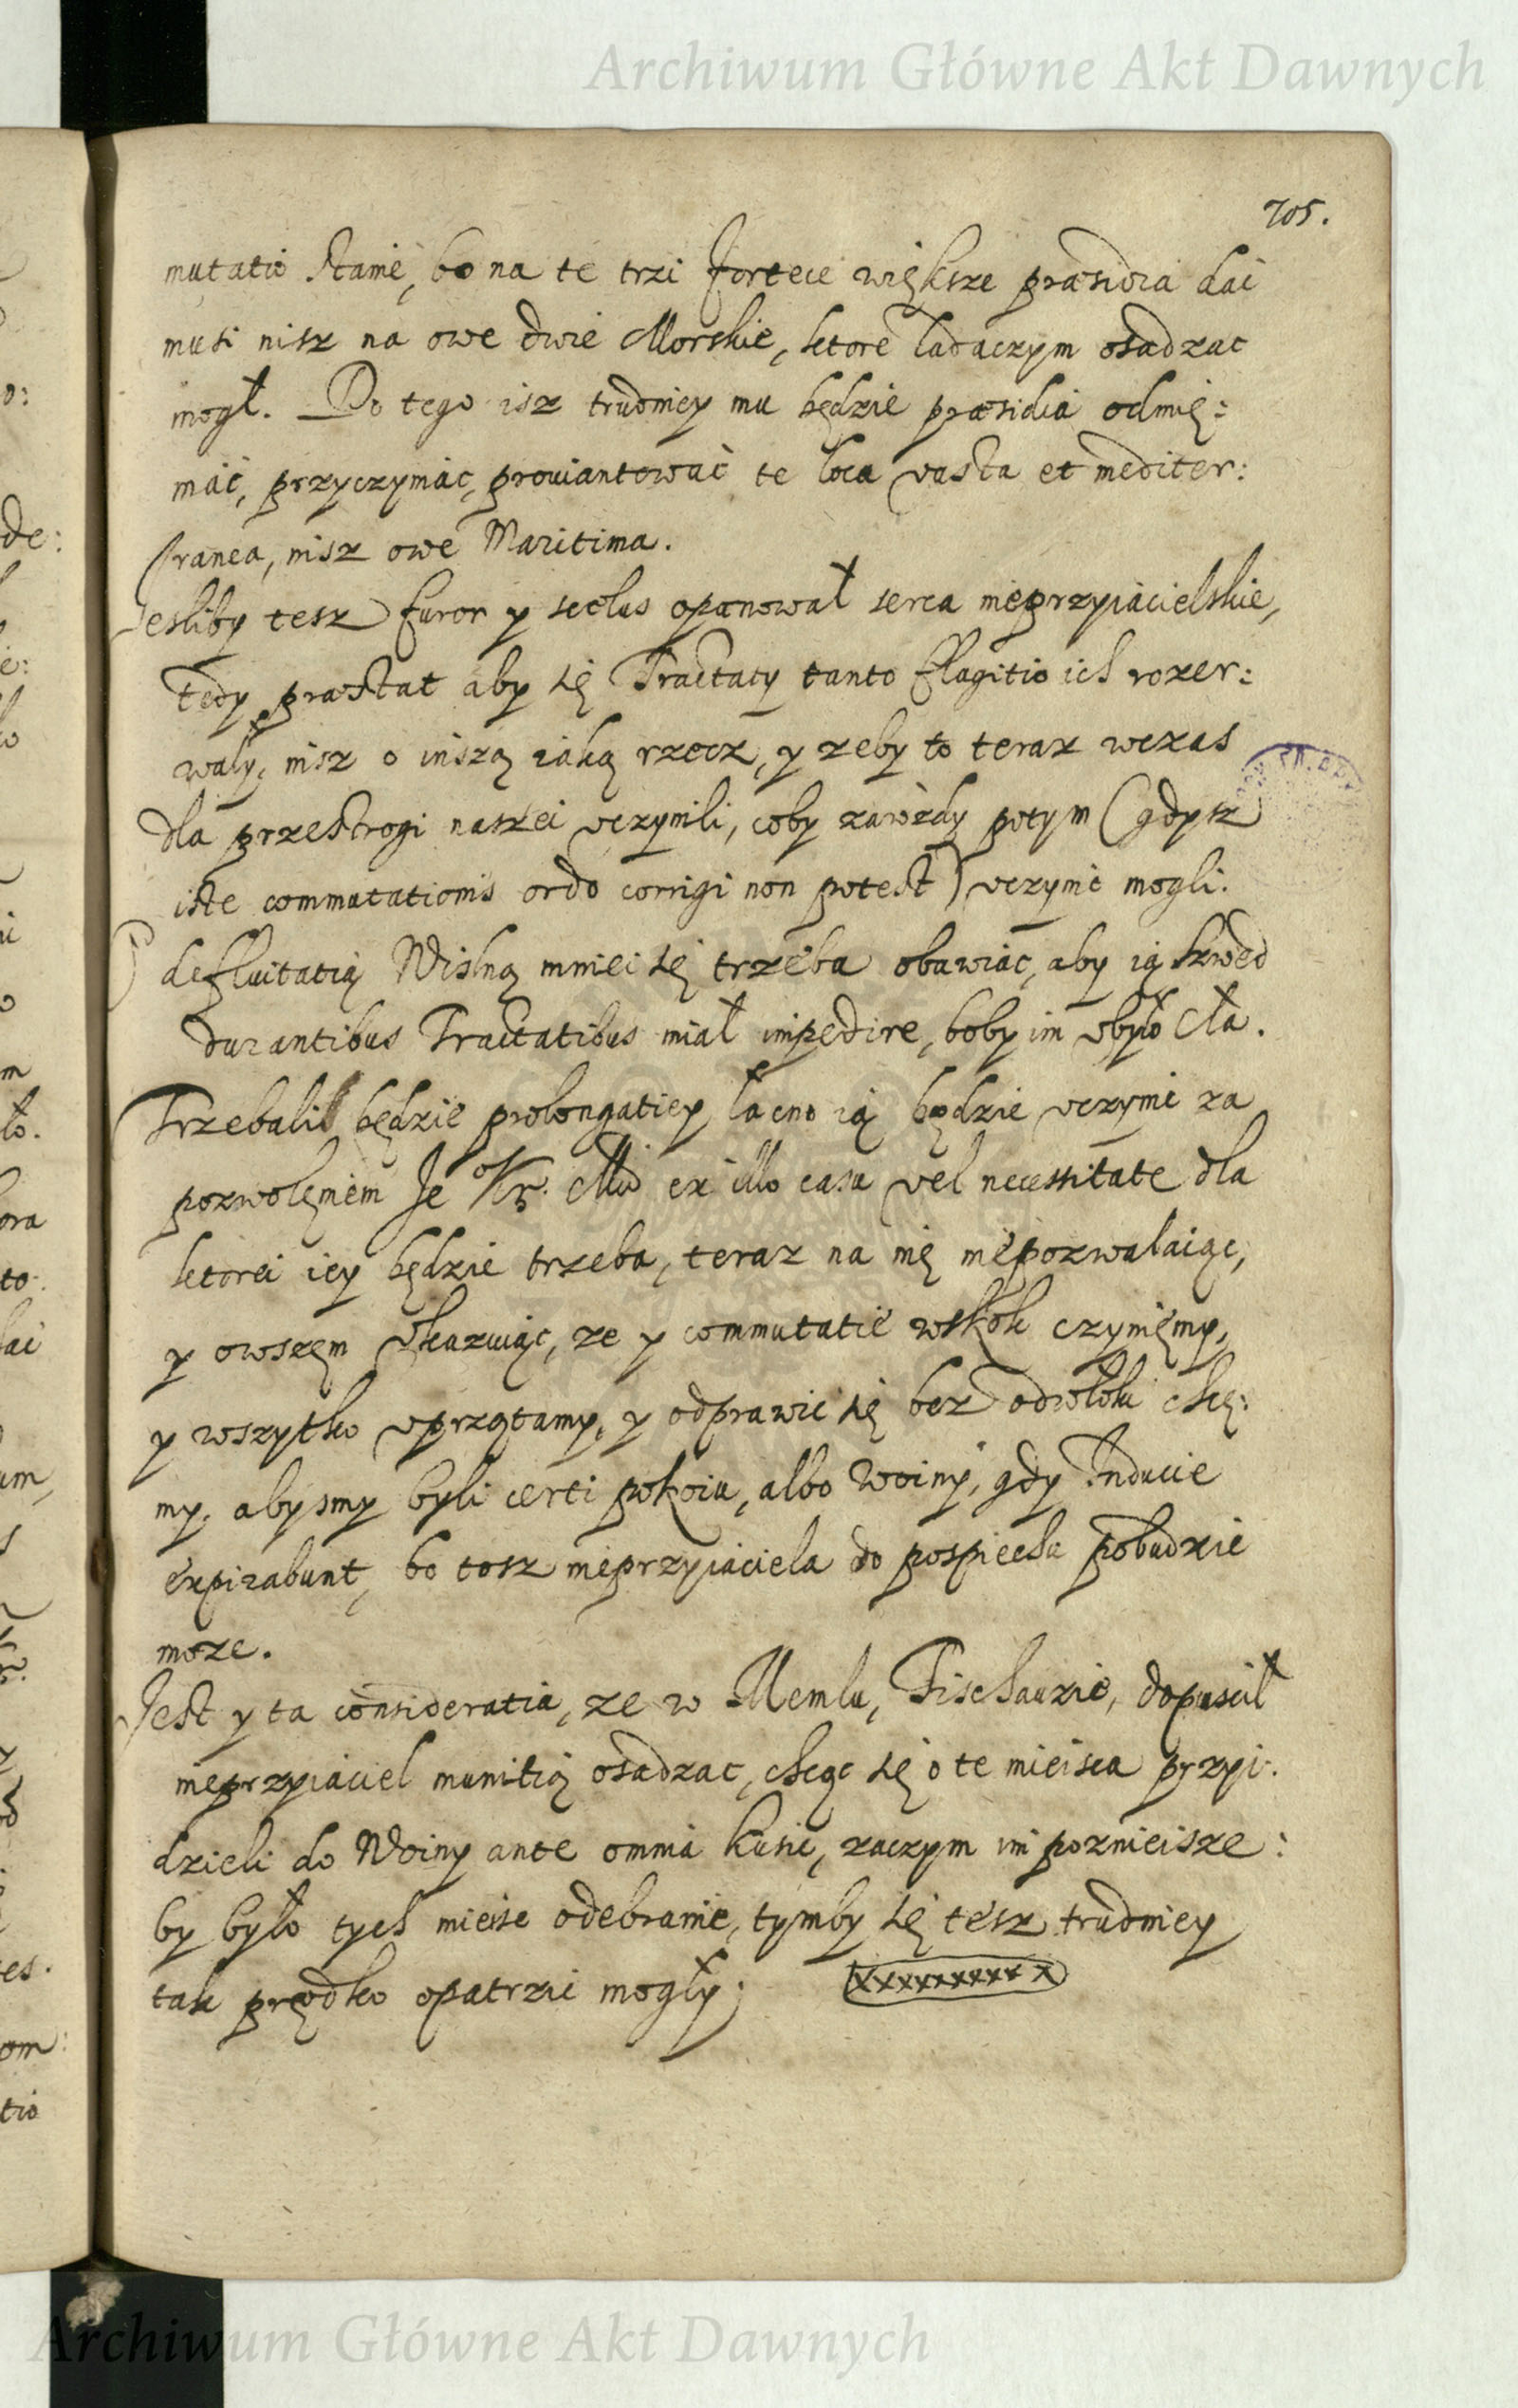 Archiwum Główne Akt Dawnych
705.
mutatio stanie, bo na te trzi fortece większe præsidia dać
musi nisz na owe dwie Morskie, ktore ladaczym osadzac
mogł. Do tego isz trudniey mu będzie præsidia odmię:
niać, przyczyniać, prowiantować te loca vasta et mediter:
ranea, nisz owe Maritima.
Jesliby tesz furor y scelus opanował serca nieprzyiacielskie,
tedy præstat aby się Tractaty tanto flagitio ich rozer:
wały, nisz o inszą iaką rzecz, y zeby to teraz wczas
dla przestrogi naszei uczynili, coby zawżdy potym (gdysz
iste commutationis ordo corrigi non potest) uczynić mogli.
defluitatią Wisłną mniei się trzeba obawiać, aby ią Szwed
durantibus Tractatibus miał impedire, boby im ubyło Cła.
Trzebali będzie prolongatiey łacno ią będzie uczynić za
pozwolęniem Je Kr. Mci ex illo casu vel necessitate dla
ktorei iey będzie trzeba, teraz na nię niepozwalaiąc,
y owszem ukazuiąc, ze y commutatie wskok czyniemy,
y wszytko uprzątamy, y odprawić się bez odwłoki chce:
my, abysmy byli certi pokoiu, albo Woiny, gdy Inducie
expirabunt, bo tosz nieprzyiaciela do pospiechu pobudzić
moze.
Jest y ta consideratia, ze w Memlu, Fischauzie, dopuscił
nieprzyiaciel munitią osadzac, chcąc się o te mieisca przyi:
dzieli do Woiny ante omnia kusić, zaczym im poznieisze:
by było tych mieisc odebranie, tymby się tesz trudniey
tak prędko opatrzić mogły;
Archiwum Główne Akt Dawnych